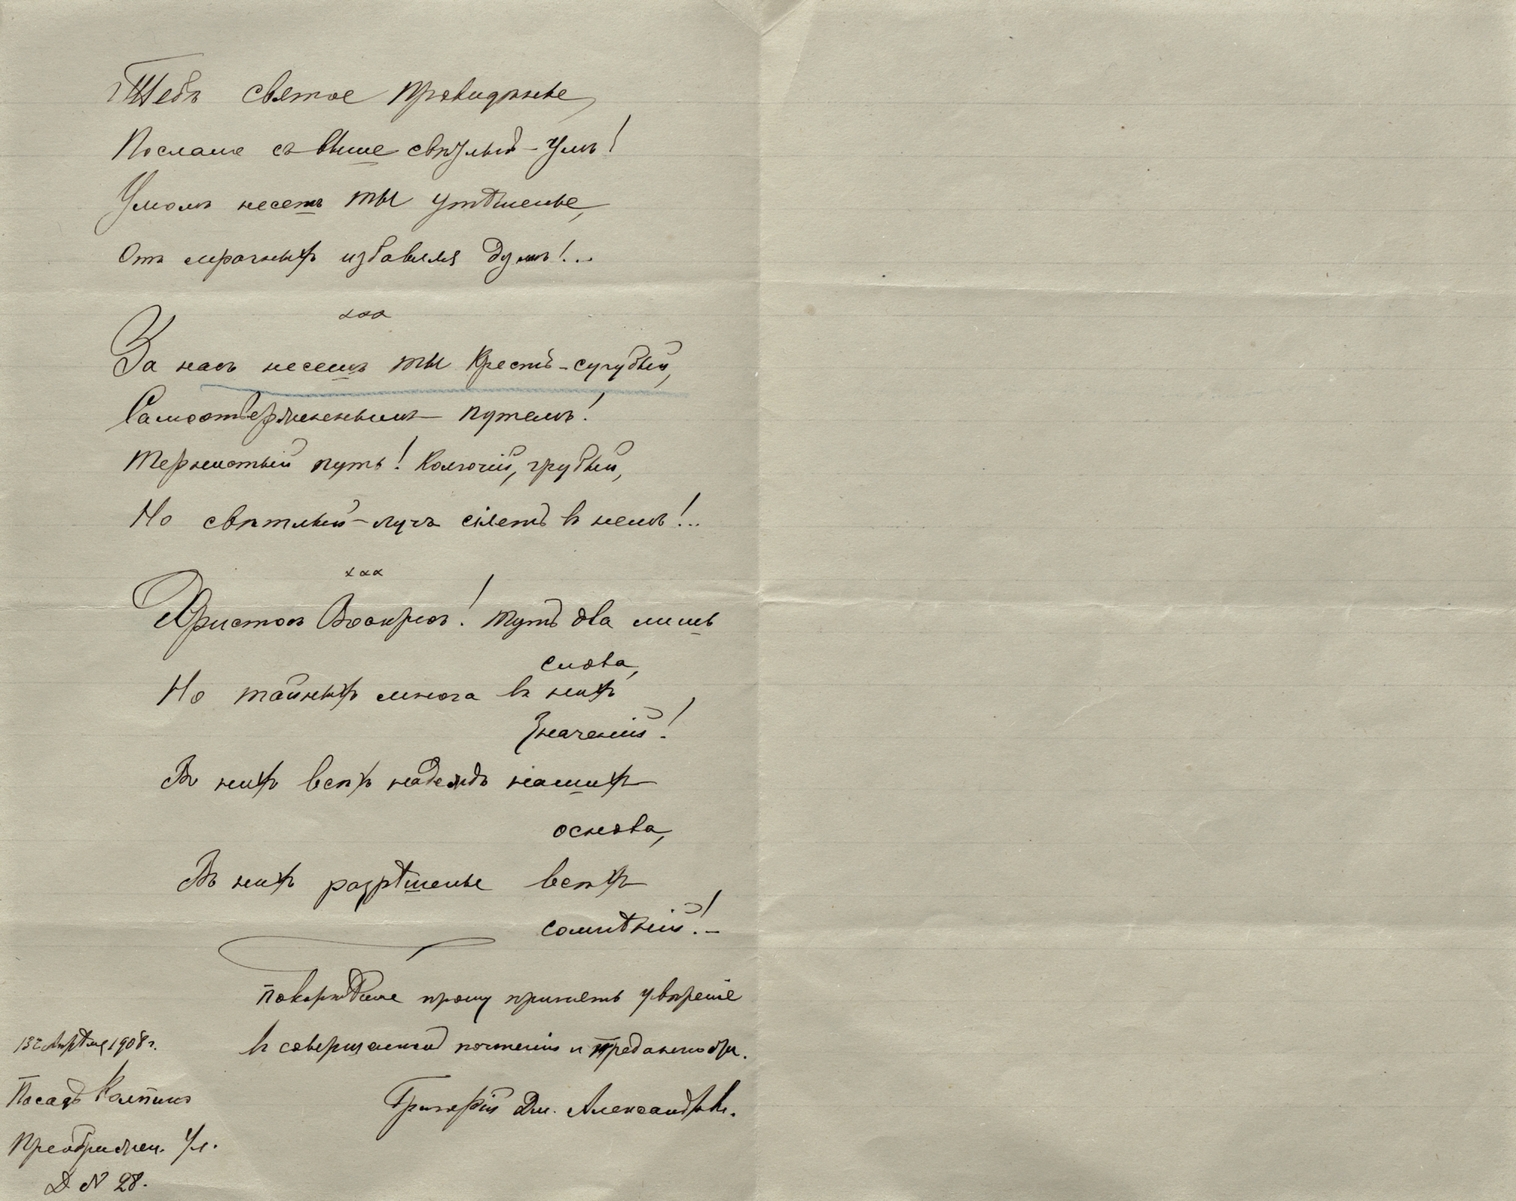 Тебѣ святое провидѣнье,
Послало съ выше свѣтлый – умъ!
Умомъ несешь ты утѣшенье,
Отъ мрачныхъ избавляя думъ!...
ххх
За насъ несешь ты Крестъ – сугубый,
Самоотверженнымъ путемъ!
Тернистый путь! Колючій, грубый,
Но свѣтлый – лучъ сіяетъ въ немъ!..
ххх
Христосъ Воскресъ! Тутъ два лишь
слова,
Но тайныхъ много въ нихъ
Значеній!
Въ нихъ всѣхъ надеждъ нашихъ
основа,
Въ нихъ разрѣшенье всѣхъ
сомнѣній! –
Покорнѣйше прошу принять увѣреніе
въ совершенной почтеніи и преданности.
Григорій Дм. Александровъ.
13го Апрѣля 1908 г.
Посадъ Колпино
Преображен. ул.
Д № 28.